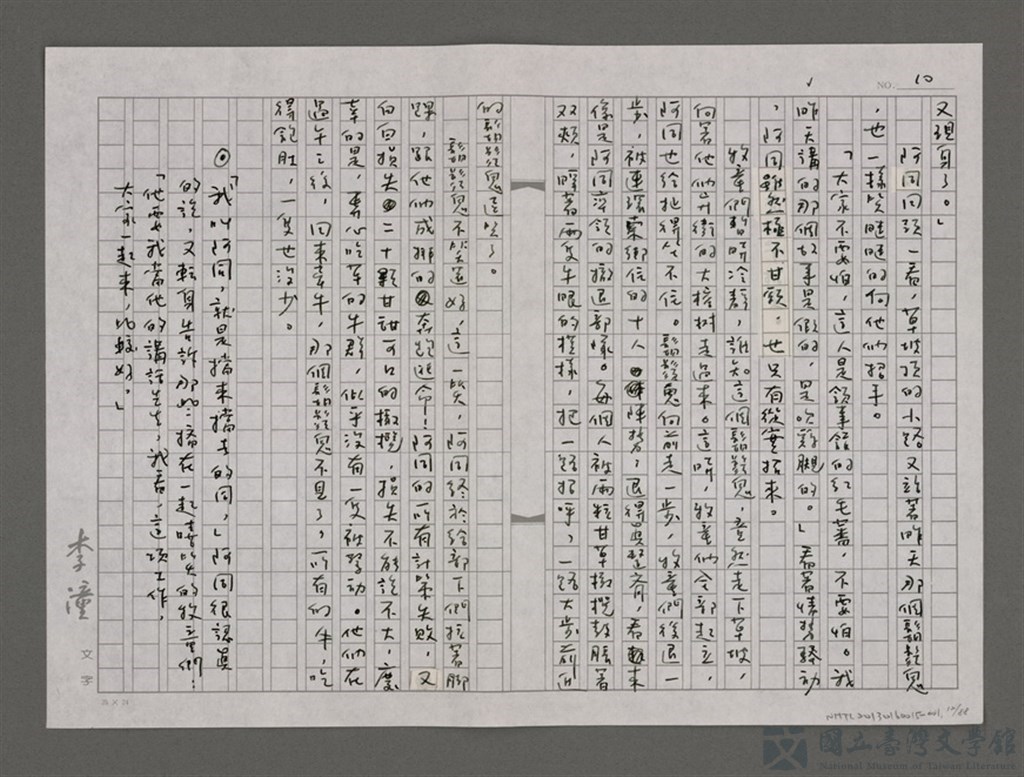 NO. 10
又現身了。」
阿同回頭一看，草坡頂的小路又站著昨天那個鬍鬚鬼
，他一樣笑瞇瞇的向他們招手。
「大家不要怕，這人是領事館的紅毛蕃，不要怕。我
昨天講的那個故事是假的，是吹雞腿的。」看著情勢騷動
，阿同雖然極不甘願，也只有從實招來。
牧童們暫時冷靜，誰知這個鬍鬚鬼，竟然走下草坡，
向著他們升衙的大榕樹走過來。這時，牧童們全部起立，
阿同也給扯得坐不住。鬍鬚鬼向前走一步，牧童們後退一
步，被連環索綁住的十人陣勢，退得真整齊，看起來
像是阿同帶領的撤退部隊。每個人被兩粒甘草橄欖鼓脹著
双頰，瞪著兩隻牛眼的模樣，把一路招呼，一路大步前近
的鬍鬚鬼逗笑了。
鬍鬚鬼不笑還好，這一笑，阿同終於給部下們拉著腳
踝，跟他們成排的奔跑逃命！阿同的所有計策失敗，又
白白損失二十顆甘甜可口的橄欖，損失不能說不大，慶
幸的是，專心吃草的牛群，似乎沒有一隻被驚動。他們在
過午之後，回來牽牛，那個鬍鬚鬼不見了，所有的牛，吃
得飽肚，一隻也沒少。
◎「我叫阿同，就是擋來擋去的同，」阿同很認真
的說，又轉身告訴那些擠在一起嘻笑的牧童們：
「他要我當他的講話先生，我看，這項工作，
大家一起來，比較好。」
李潼
文字
25 X 24
國立臺灣文學館
National Museum of Taiwan Literature